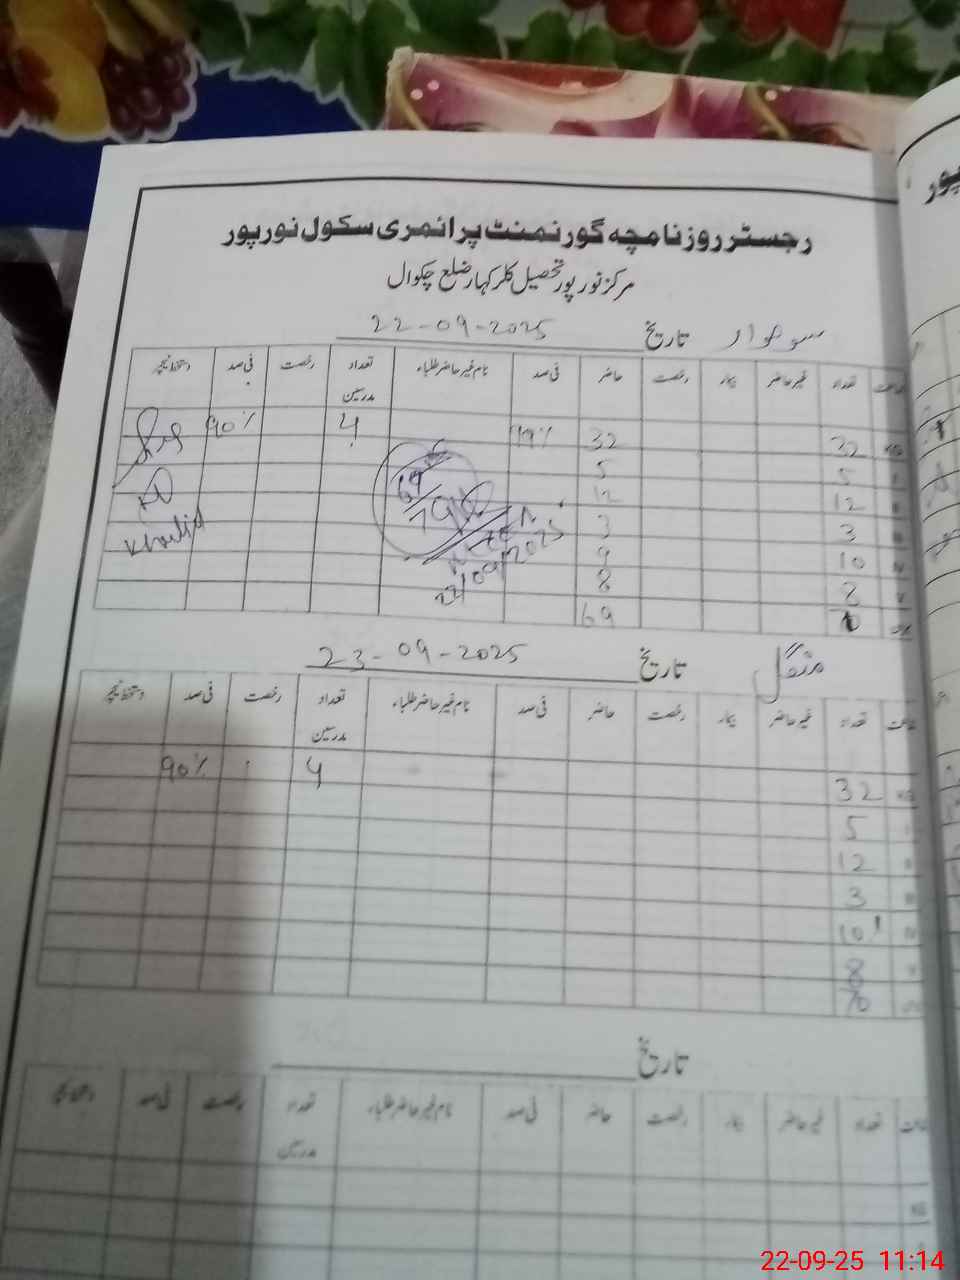 رجسٹر روزنامچہ گورنمنٹ پرائمری سکول نورپور
مرکز نورپور تحصیل کلرکہار ضلع چکوال
سوموار تاریخ 22-09-2025
جماعت تعداد غیر حاضر بیمار رخصت حاضر فی صد نام غیر حاضر طلباء تعداد مدرسین رخصت فی صد دستخط ٹیچر
KG 32 32 99% 4 90%
I 5 5
II 12 12
III 3 3
IV 10 9
V 8 8
70 69
69
Khalid
22/09/2025
منگل تاریخ 23-09-2025
جماعت تعداد غیر حاضر بیمار رخصت حاضر فی صد نام غیر حاضر طلباء تعداد مدرسین رخصت فی صد دستخط ٹیچر
KG 32 4 90%
I 5
II 12
III 3
IV 10
V 8
70
تاریخ
جماعت تعداد غیر حاضر بیمار رخصت حاضر فی صد نام غیر حاضر طلباء تعداد مدرسین رخصت فی صد دستخط ٹیچر
KG
پور
22-09-25 11:14